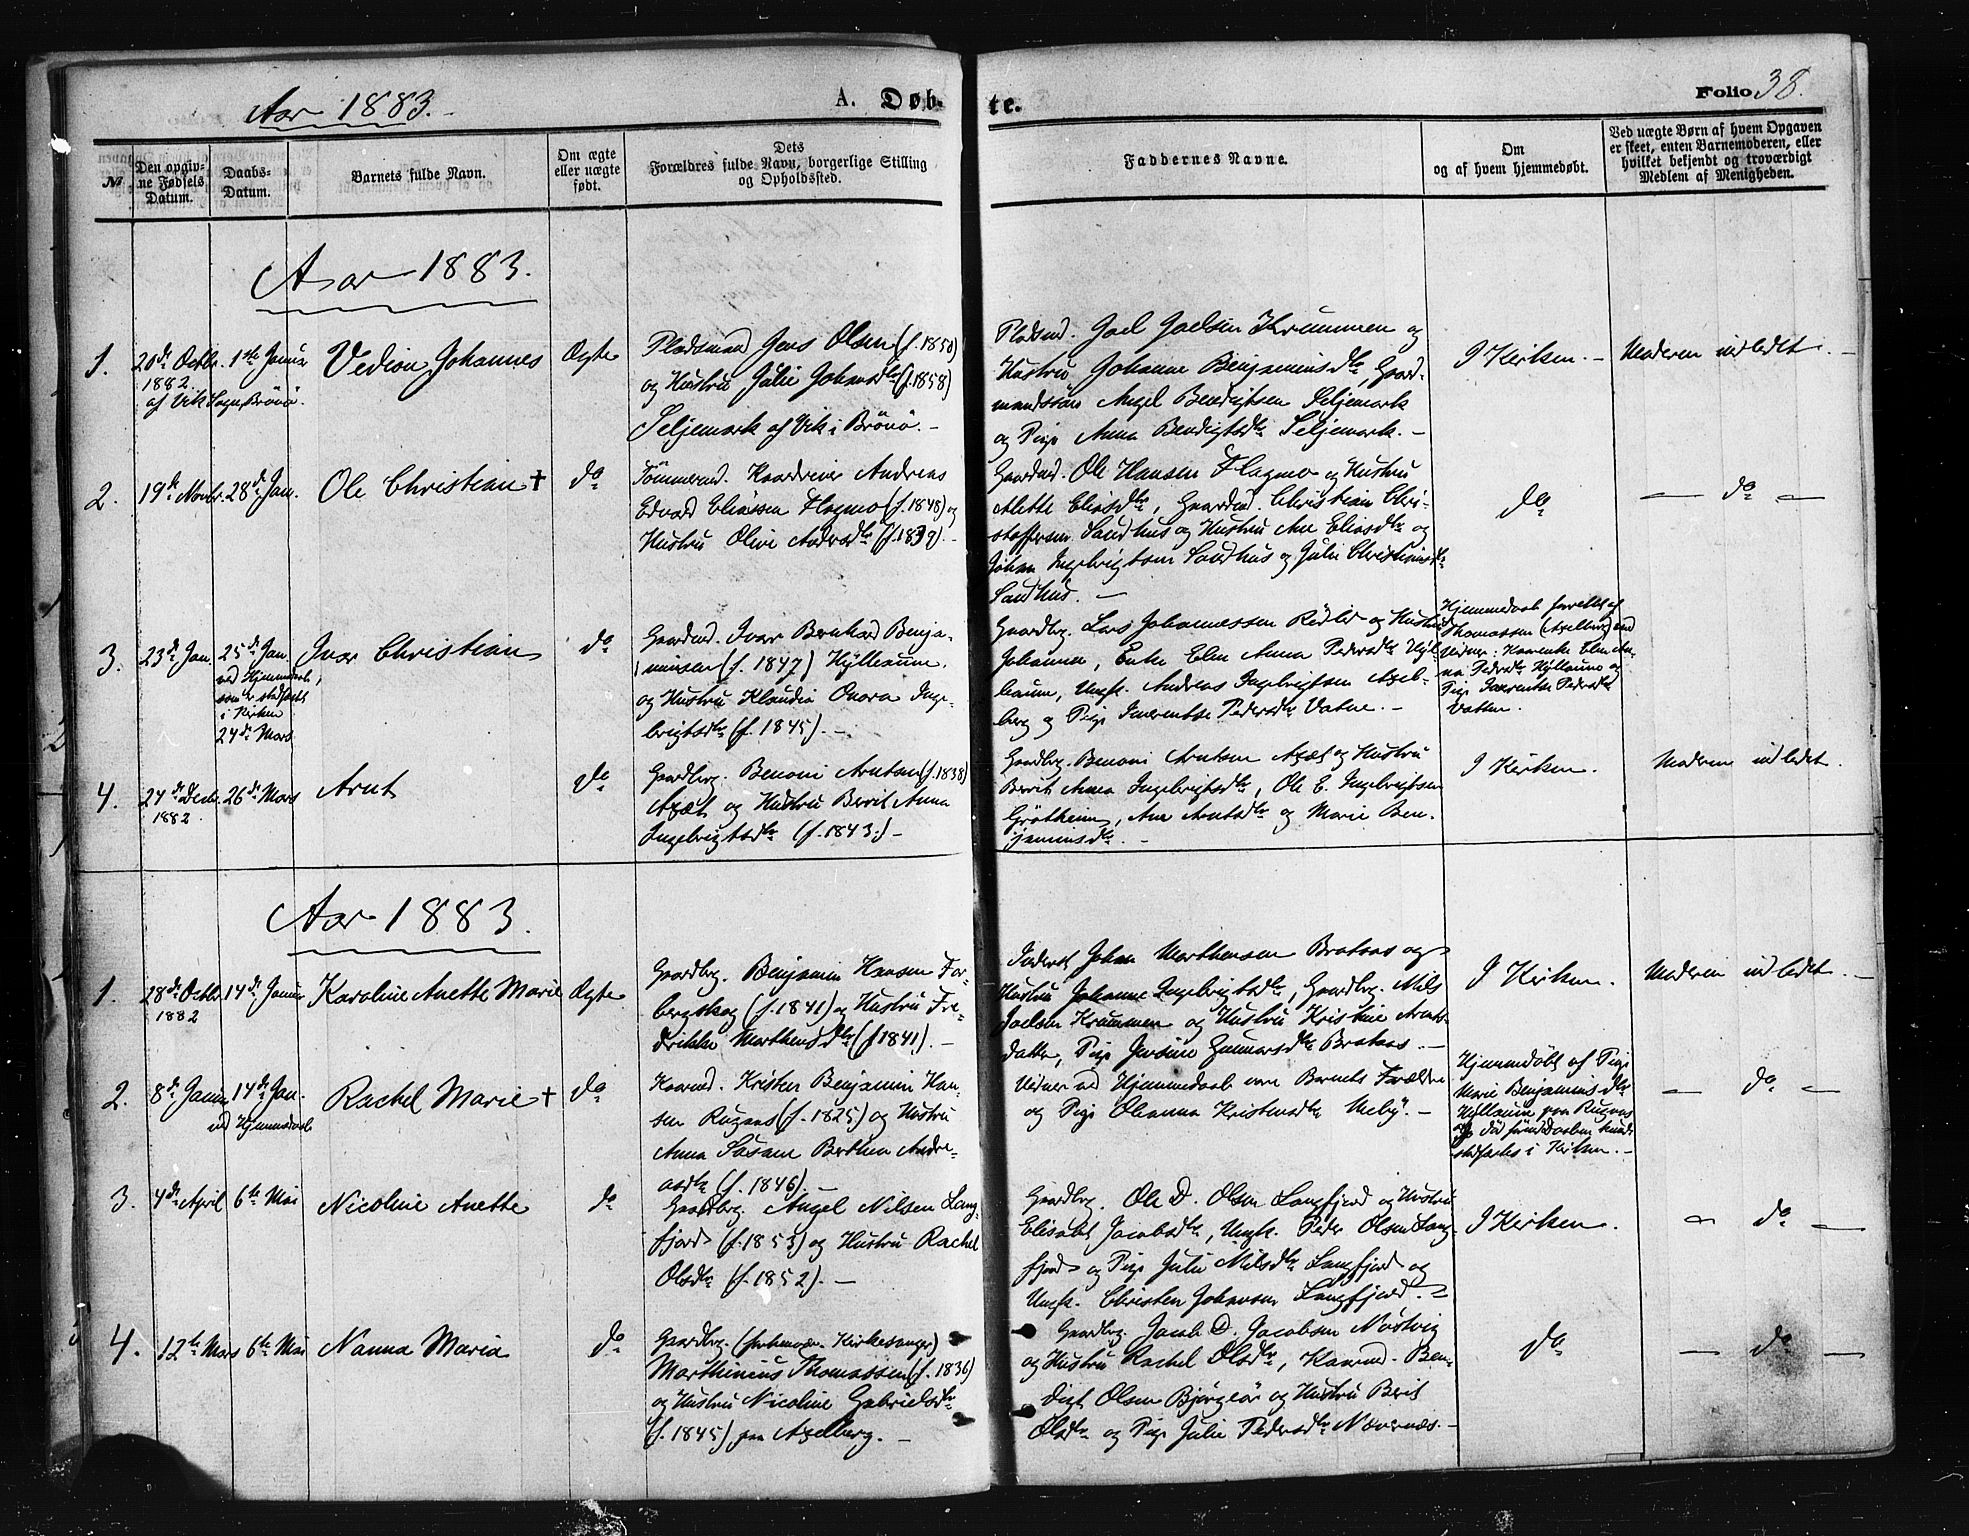 Aar 1883.
A. Døb-
te.
Folio 38.
№
Den opgiv-
ne Fødsels
Datum.
Daabs-
Datum.
Barnets fulde Navn.
Om ægte
eller uægte
født.
Dets
Forældres fulde Navn, borgerlige Stilling
og Opholdssted.
Faddernes Navne.
Om
og af hvem hjemmedøbt.
Ved uægte Børn af hvem Opgaven
er skeet, enten Barnemoderen, eller
hvilket bekjendt og troværdigt
Medlem af Menigheden.
Aar 1883.
1.
20de Octbr.
1882
af Vik Sogn, Brönö.
1ste Januar
Vedion Johannes
Ægte
Pladsmand Jens Olsen (f. 1850)
og Hustru Julie Johansdtr (f. 1858)
Seljemark af Vik i Brönö. –
Pladsmd. Joel Joelsen Krummen og
Hustru Johanne Benjaminsdtr, Gaard-
mandssön Angel Bendigtsen Seljemark
og Pige Anna Bendigtsdtr Seljemark. –
I Kirken. –
Moderen indledet. –
2.
19de Novbr.
28de Jan.
Ole Christian †
do
Tömmermd. Kaardreier Andreas
Edvard Eliassen Flagmo (f. 1848) og
Hustru Olive Andersdtr (f. 1839). –
Gaardmd. Ole Hansen Flagmo og Hustru
Alette Eliasdtr, Gaardmd. Christian Chri-
stoffersen Sandhus og Hustru Ane Eliasdtr og
Johan Ingebrigtsen Sandhus og Julie Christiansdtr
Sandhus. –
do
– do –
3.
23de Jan.
25de Jan.
ved Hjemmedaab,
som er stadfæstet
i Kirken
24de Marts
Ivar Christian
do
Gaardmd. Ivar Bernhard Benja-
minsen (f. 1847) Hylleaune
og Hustru Klaudia Onora Inge-
brigtsdtr (f. 1845). –
Gaardbrg. Lars Johannessen Rödli og Hustru
Johanna, Enke Elen Anna Pedersdtr Hyl-
leaune, Ungk. Andreas Ingebrigtsen Axel-
berg og Pige Inerentse Pedersdtr Vatne. –
Hjemmedaab forrettet af
Thomassen (Axelberg) ved
Vidner: Kaarenke Elen An-
na Pedersdtr Hylleaune og
Pige Inerentse Pedersdtr
Vatten.
4.
24de Decbr.
1882
26de Marts
Arnt
do
Gaardbrg. Benoni Arntsen (f. 1838)
Axæt og Hustru Berit Anna
Ingebrigtsdtr (f. 1843.) –
Gaardbrg. Benoni Arntsen Axæt og Hustru
Berit Anna Ingebrigtsdtr, Ole E. Ingebrigtsen
Grötheim, Ane Arntsdtr og Marie Ben-
jaminsdtr. –
I Kirken.
Moderen indledet.
Aar 1883.
1.
28de Octbr.
1882
14de Januar
Karoline Anette Marie
Ægte
Gaardbrg. Benjamin Hansen For-
bergskog (f. 1841) og Hustru Fre-
drikke Marthensdtr (f. 1841). –
Inderst Johan Marthensen Brataas og
Hustru Johanne Ingebrigtsdtr, Gaardbrg. Nils
Joelsen Krummen og Hustru Kristine Arnts-
datter, Pige Jensine Gunnarsdtr Brataas. –
I Kirken.
Moderen indledet. –
2.
8de Januar
14de Jan.
ved Hjemmedaab
Rachel Marie †
do
Kaarmd. Kristen Benjamin Han-
sen Rugaas (f. 1825) og Hustru
Anna Susane Berthea Andre-
asdtr (f. 1846). –
Vidner ved Hjemmedaab vare Barnets Forældre
og Pige Oleanna Kristensdtr Meby. –
Hjemmedöbt af Pige
Marie Benjaminsdtr
Hylleaune paa Rugaas
og död förend Daaben kunde
stadfæstes i Kirken. –
– do –
3.
4de April
6te Mai
Nicoline Anette
do
Gaardbrg. Angel Nilsen Lang-
fjord (f. 1853) og Hustru Rachel
Olsdtr (f. 1852). –
Gaardbrg. Ole D. Olsen Langfjord og Hustru
Elisabet Jacobsdtr, Ungk. Peder Olsen Lang-
fjord og Pige Julie Nilsdtr Langfjord og
Ungk. Christen Johansen Langfjord. –
I Kirken.
– do –
4.
12te Marts
6te Mai
Nanna Maria
do
Gaardbrg. (forhenvær. Kirkesanger)
Marthinius Thomassen (f. 1836)
og Hustru Nicoline Gabrielsdtr
(f. 1845) paa Axelberg. –
Gaardbrg. Jacob D. Jacobsen Nöstvig
og Hustru Rachel Olsdtr, Kaarmd. Ben-
digt Olsen Björgöör og Hustru Berit
Olsdtr og Pige Julie Pedersdtr Nævernæs. –
do
– do –